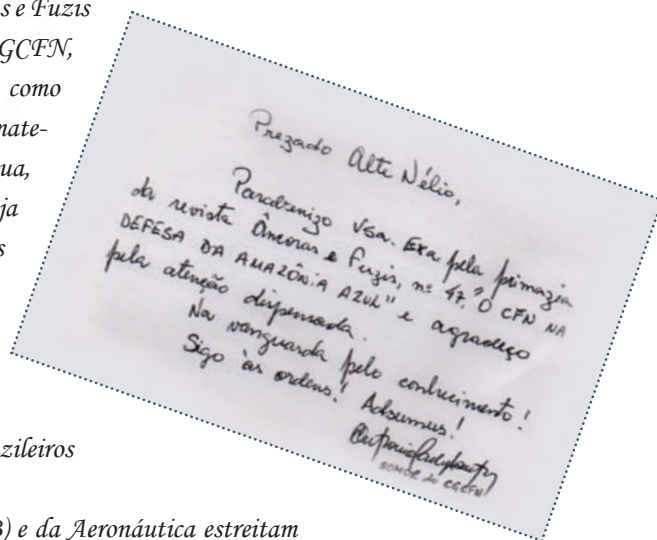 s e Fuzis
GCFN,
como
nate-
ua,
ja
s
zileiros
B) e da Aeronáutica estreitam
Prezado Alte Nélio,
Parabenizo VSa. Exa pela primazia
da revista Âncoras e Fuzis, nº 47, "O CFN NA
DEFESA DA AMAZÔNIA AZUL" e agradeço
pela atenção dispensada.
Na vanguarda pelo conhecimento!
Sigo às ordens! Adsumus!
SOMOR do CGCFN